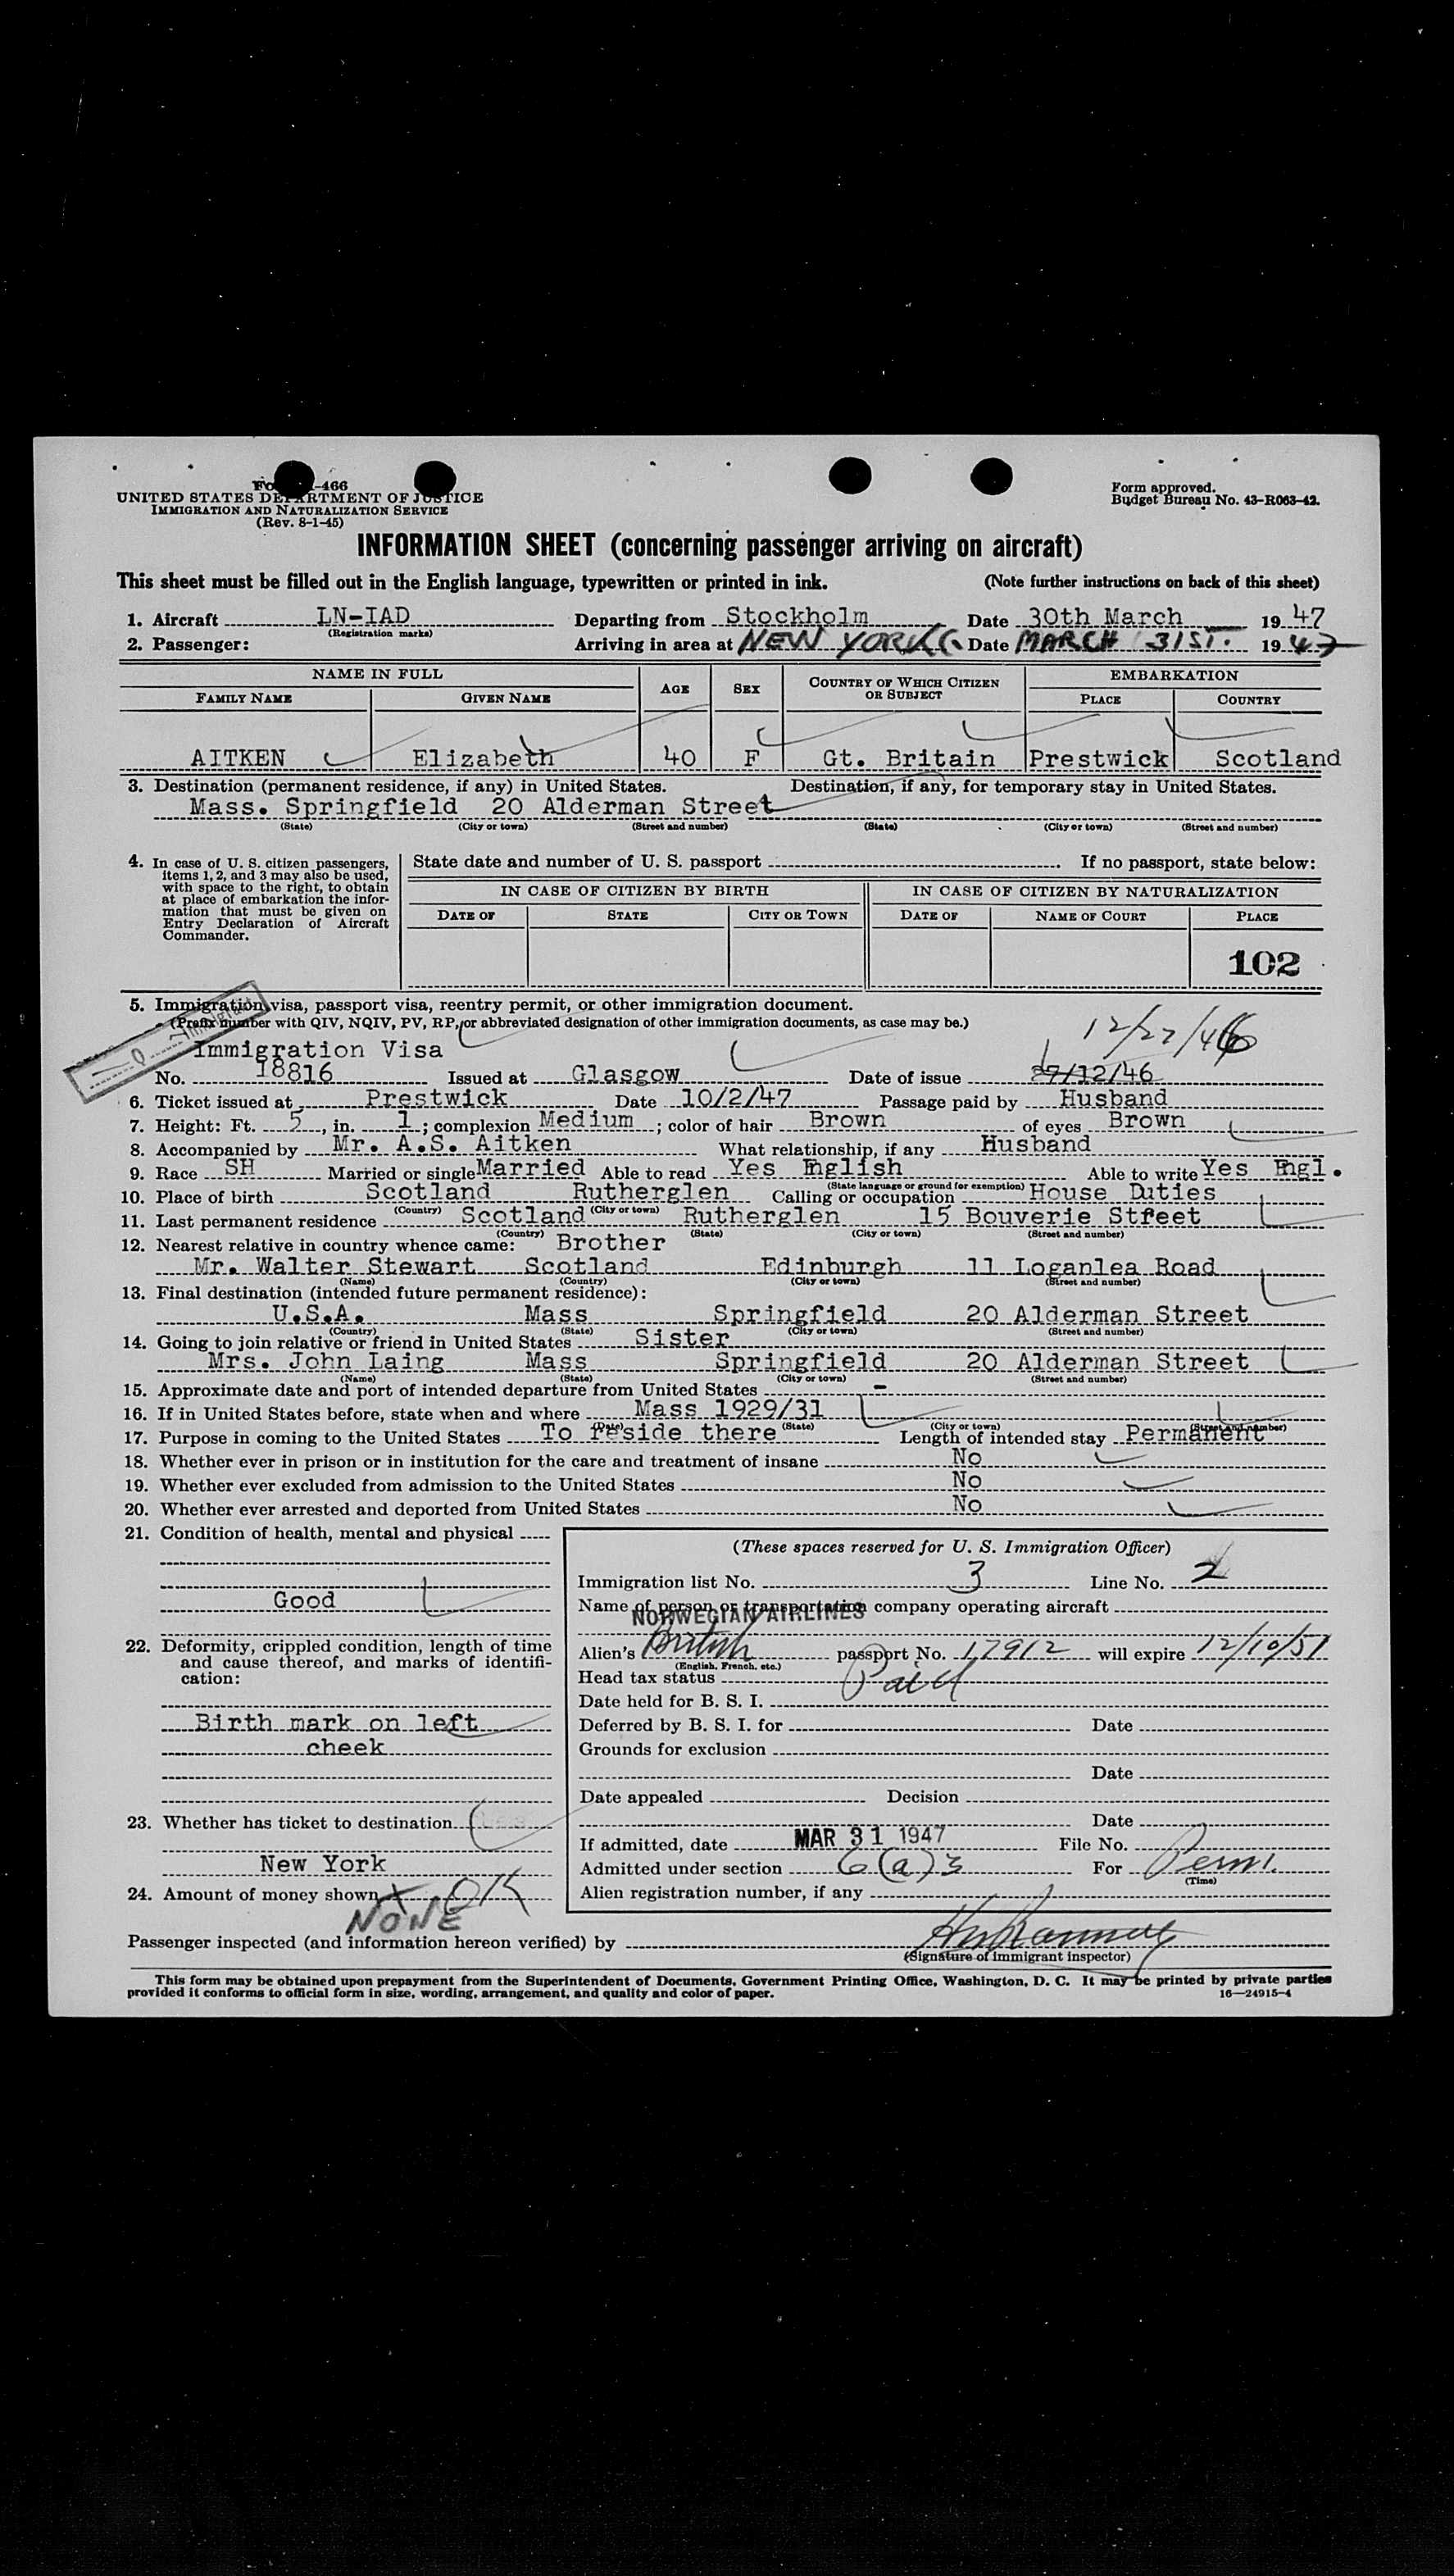 -466
UNITED STATES DEPARTMENT OF JUSTICE
IMMIGRATION AND NATURALIZATION SERVICE
(Rev. 8-1-45)
Form approved.
Budget Bureau No. 43-R063-42.
INFORMATION SHEET (concerning passenger arriving on aircraft)
This sheet must be filled out in the English language, typewritten or printed in ink. (Note further instructions on back of this sheet)
1. Aircraft LN-IAD Departing from Stockholm Date 30th March 1947
(Registration marks)
2. Passenger: Arriving in area at NEW YORK Date MARCH 31ST. 1947
NAME IN FULL AGE SEX COUNTRY OF WHICH CITIZEN OR SUBJECT EMBARKATION
FAMILY NAME GIVEN NAME PLACE COUNTRY
AITKEN Elizabeth 40 F Gt. Britain Prestwick Scotland
3. Destination (permanent residence, if any) in United States. Destination, if any, for temporary stay in United States.
Mass. Springfield 20 Alderman Street
(State) (City or town) (Street and number) (State) (City or town) (Street and number)
4. In case of U. S. citizen passengers, items 1, 2, and 3 may also be used, with space to the right, to obtain at place of embarkation the information that must be given on Entry Declaration of Aircraft Commander.
State date and number of U. S. passport If no passport, state below:
IN CASE OF CITIZEN BY BIRTH IN CASE OF CITIZEN BY NATURALIZATION
DATE OF STATE CITY OR TOWN DATE OF NAME OF COURT PLACE
102
5. Immigration visa, passport visa, reentry permit, or other immigration document.
(Prefix number with QIV, NQIV, PV, RP, or abbreviated designation of other immigration documents, as case may be.)
12/27/46
Immigration Visa
No. 18816 Issued at Glasgow Date of issue 27/12/46
6. Ticket issued at Prestwick Date 10/2/47 Passage paid by Husband
7. Height: Ft. 5, in. 1; complexion Medium; color of hair Brown of eyes Brown
8. Accompanied by Mr. A.S. Aitken What relationship, if any Husband
9. Race SH Married or single Married Able to read Yes English Able to write Yes Engl.
(State language or ground for exemption)
10. Place of birth Scotland Rutherglen Calling or occupation House Duties
(Country) (City or town)
11. Last permanent residence Scotland Rutherglen 15 Bouverie Street
(Country) (State) (City or town) (Street and number)
12. Nearest relative in country whence came: Brother
Mr. Walter Stewart Scotland Edinburgh 11 Loganlea Road
(Name) (Country) (City or town) (Street and number)
13. Final destination (intended future permanent residence):
U.S.A. Mass Springfield 20 Alderman Street
(Country) (State) (City or town) (Street and number)
14. Going to join relative or friend in United States Sister
Mrs. John Laing Mass Springfield 20 Alderman Street
(Name) (State) (City or town) (Street and number)
15. Approximate date and port of intended departure from United States -
16. If in United States before, state when and where Mass 1929/31
(Date) (State) (City or town) (Street and number)
17. Purpose in coming to the United States To reside there Length of intended stay Permanent
18. Whether ever in prison or in institution for the care and treatment of insane No
19. Whether ever excluded from admission to the United States No
20. Whether ever arrested and deported from United States No
21. Condition of health, mental and physical
Good
22. Deformity, crippled condition, length of time and cause thereof, and marks of identification:
Birth mark on left
cheek
23. Whether has ticket to destination
New York
24. Amount of money shown OK
NONE
(These spaces reserved for U. S. Immigration Officer)
Immigration list No. 3 Line No. 2
Name of person or transportation company operating aircraft
NORWEGIAN AIRLINES
Alien's British passport No. 17912 will expire 12/10/51
(English, French, etc.)
Head tax status Paid
Date held for B. S. I.
Deferred by B. S. I. for Date
Grounds for exclusion
Date
Date appealed Decision
Date
If admitted, date MAR 31 1947 File No.
Admitted under section 6(a)3 For Perm.
(Time)
Alien registration number, if any
Passenger inspected (and information hereon verified) by
(Signature of immigrant inspector)
This form may be obtained upon prepayment from the Superintendent of Documents, Government Printing Office, Washington, D. C. It may be printed by private parties
provided it conforms to official form in size, wording, arrangement, and quality and color of paper. 16—24915-4